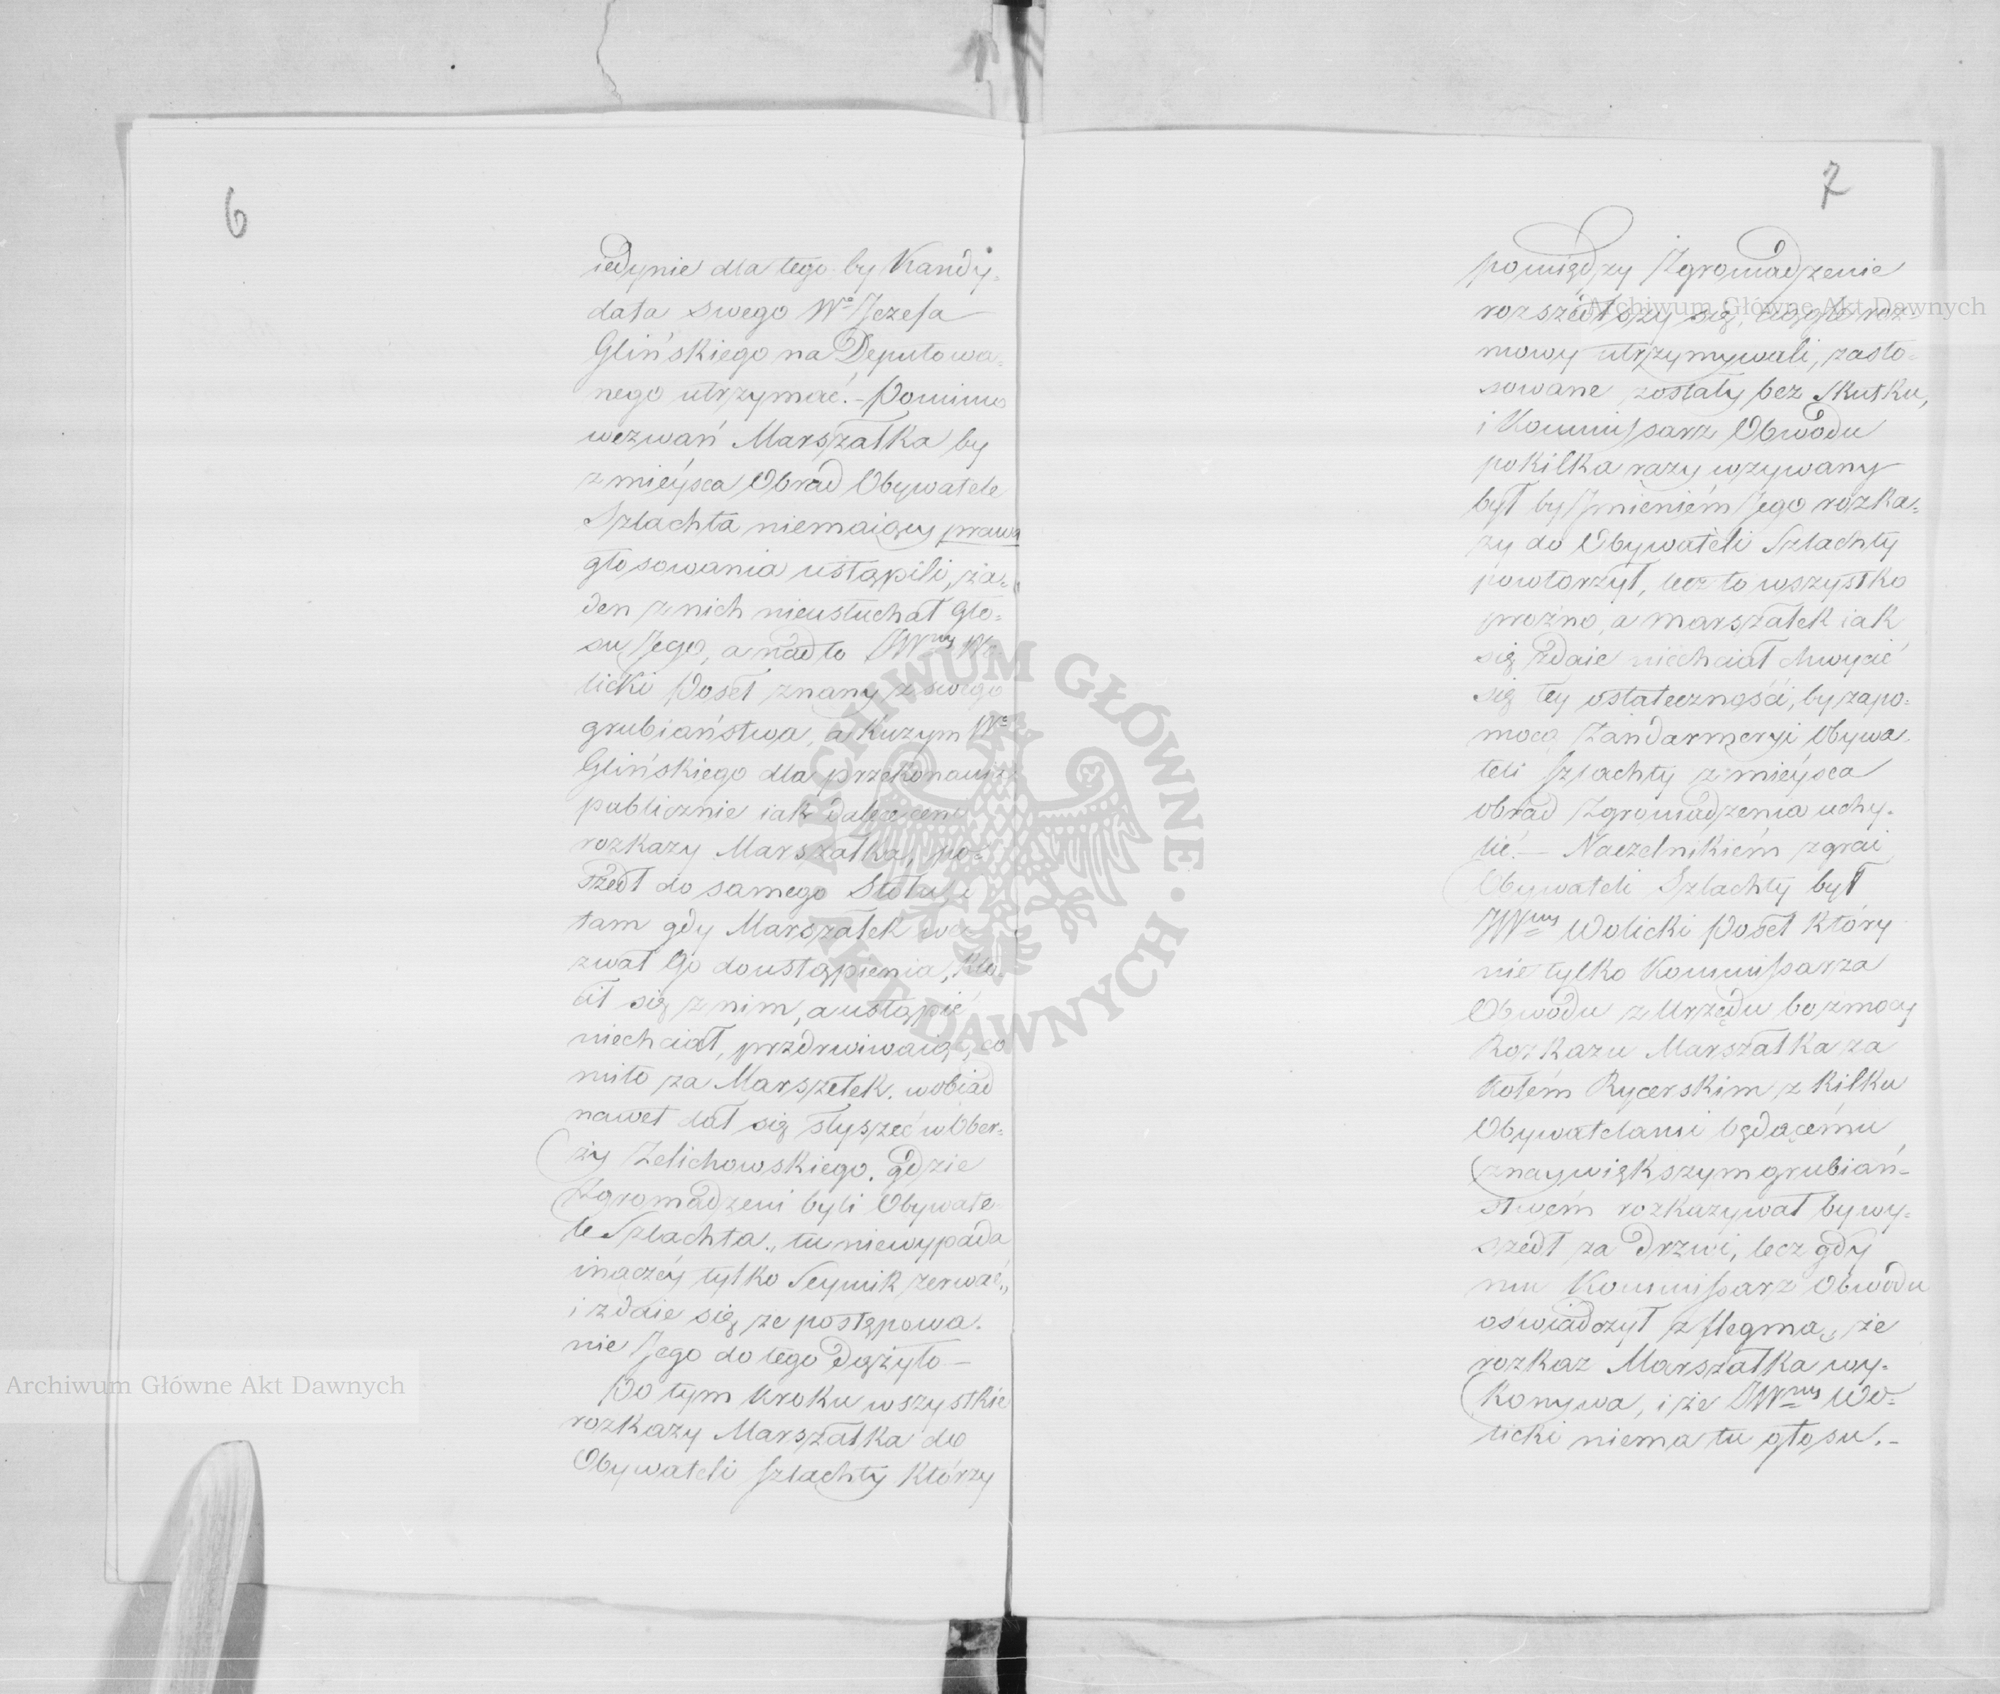 6
iedynie dla tego by Kandy-
data swego Wº Jezefa
Glińskiego na Deputowa-
nego utrzymać.- Pomimo
wezwań Marszałka by
z mieysca Obrad Obywatele
Szlachta niemaiący prawa
głosowania ustąpili, ża-
den z nich nieusłuchał Gło-
su Jego, a nadto JWny Wo-
licki Poseł znany z swego
grubiaństwa, a Kuzym Wº
Glińskiego dla przekonania
publicznie iak dalece ceni
rozkazy Marszałka, po-
szedł do samego Stołu, i
tam gdy Marszałek we-
zwał Go do ustąpienia, kłó-
cił się z nim, a ustąpić
niechciał, przedrwiwaiąc, co
mito za Marszełek. wobiad
nawet dał się słyszeć w Ober-
ży Zelichowskiego. gdzie
Zgromadzeni byli Obywate-
le Szlachta „ tu niewypada
inaczéy tylko Seymik zerwać „
i zdaie się że postępowa-
nie Jego do tego dążyło -
Po tym kroku wszystkie
rozkazy Marszałka do
Obywateli Szlachty którzy
7
pomiędzy Zgromadzenie
rozszedłszy się, roz-
mowy utrzymywali, zasto-
sowane zostały bez Skutku,
i Kommissarz Obwodu
pokilka razy wzywany
był by Imieniem Jego rozka-
zy do Obywateli Szlachty
powtorzył, lecz to wszystko
prozno, a Marszałek iak
się zdaie niechciał chwycić
się tey ostateczności, by zapo-
mocą Zandarmeryi Obywa-
teli Szlachty z mieysca
obrad Zgromadzenia uchy-
lić. - Naczelnikiem zgrai
Obywateli Szlachty był
JWny Wolicki Poseł który
nie tylko Kommissarza
Obwodu z Urzędu bo z mocy
Rozkazu Marszałka za
Kołem Rycerskim z kilku
Obywatelami będącemu
z naywiększym grubiań-
stwem rozkazywał by wy-
szedł za drzwi, lecz gdy
mu Kommissarz Obwodu
oświadczył z flegmą, że
rozkaz Marszałka wy-
konywa, i że JWny Wo-
licki niema tu głosu. -
Archiwum Główne Akt Dawnych
Archiwum Główne Akt Dawnych
ARCHIWUM GŁÓWNE AKT DAWNYCH